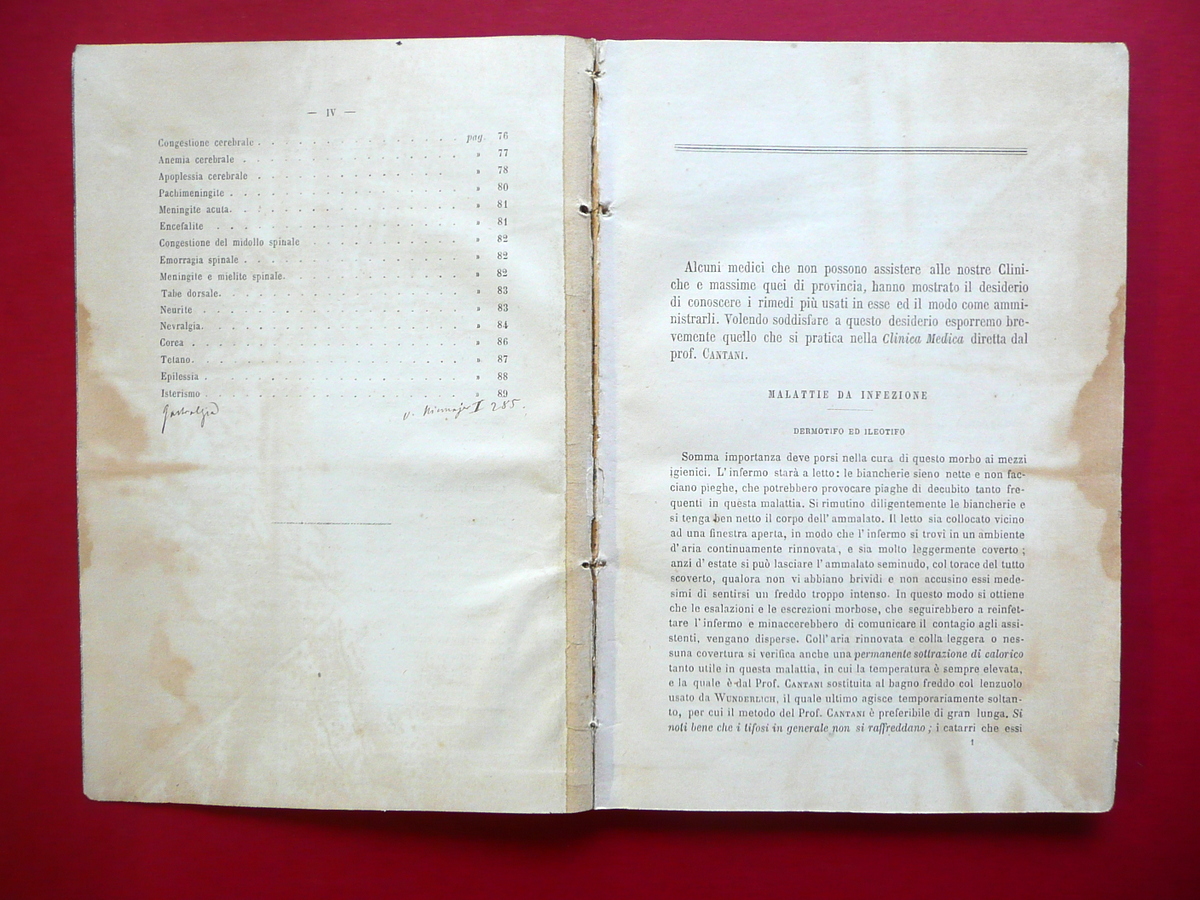 — IV —
Congestione cerebrale . . . . . . . . . . . . pag. 76
Anemia cerebrale . . . . . . . . . . . . . » 77
Apoplessia cerebrale . . . . . . . . . . . . » 78
Pachimeningite . . . . . . . . . . . . . . » 80
Meningite acuta. . . . . . . . . . . . . . » 81
Encefalite . . . . . . . . . . . . . . . » 81
Congestione del midollo spinale . . . . . . . . . » 82
Emorragia spinale . . . . . . . . . . . . . » 82
Meningite e mielite spinale. . . . . . . . . . . » 82
Tabe dorsale. . . . . . . . . . . . . . . » 83
Neurite . . . . . . . . . . . . . . . . » 83
Nevralgia. . . . . . . . . . . . . . . . » 84
Corea . . . . . . . . . . . . . . . . . » 86
Tetano. . . . . . . . . . . . . . . . . » 87
Epilessia . . . . . . . . . . . . . . . . » 88
Isterismo . . . . . . . . . . . . . . . . » 89
Gastralgia v. Niemajer I 285.
Alcuni medici che non possono assistere alle nostre Clini-
che e massime quei di provincia, hanno mostrato il desiderio
di conoscere i rimedi più usati in esse ed il modo come ammi-
nistrarli. Volendo soddisfare a questo desiderio esporremo bre-
vemente quello che si pratica nella Clinica Medica diretta dal
prof. CANTANI.
MALATTIE DA INFEZIONE
DERMOTIFO ED ILEOTIFO
Somma importanza deve porsi nella cura di questo morbo ai mezzi
igienici. L' infermo starà a letto: le biancherie sieno nette e non fac-
ciano pieghe, che potrebbero provocare piaghe di decubito tanto fre-
quenti in questa malattia. Si rimutino diligentemente le biancherie e
si tenga ben netto il corpo dell' ammalato. Il letto sia collocato vicino
ad una finestra aperta, in modo che l' infermo si trovi in un ambiente
d' aria continuamente rinnovata, e sia molto leggermente coverto ;
anzi d' estate si può lasciare l' ammalato seminudo, col torace del tutto
scoverto, qualora non vi abbiano brividi e non accusino essi mede-
simi di sentirsi un freddo troppo intenso. In questo modo si ottiene
che le esalazioni e le escrezioni morbose, che seguirebbero a reinfet-
tare l' infermo e minaccerebbero di comunicare il contagio agli assi-
stenti, vengano disperse. Coll' aria rinnovata e colla leggera o nes-
suna covertura si verifica anche una permanente sottrazione di calorico
tanto utile in questa malattia, in cui la temperatura è sempre elevata,
e la quale è dal Prof. CANTANI sostituita al bagno freddo col lenzuolo
usato da WUNDERLICH, il quale ultimo agisce temporariamente soltan-
to, per cui il metodo del Prof. CANTANI è preferibile di gran lunga. Si
noti bene che i tifosi in generale non si raffreddano ; i catarri che essi
1